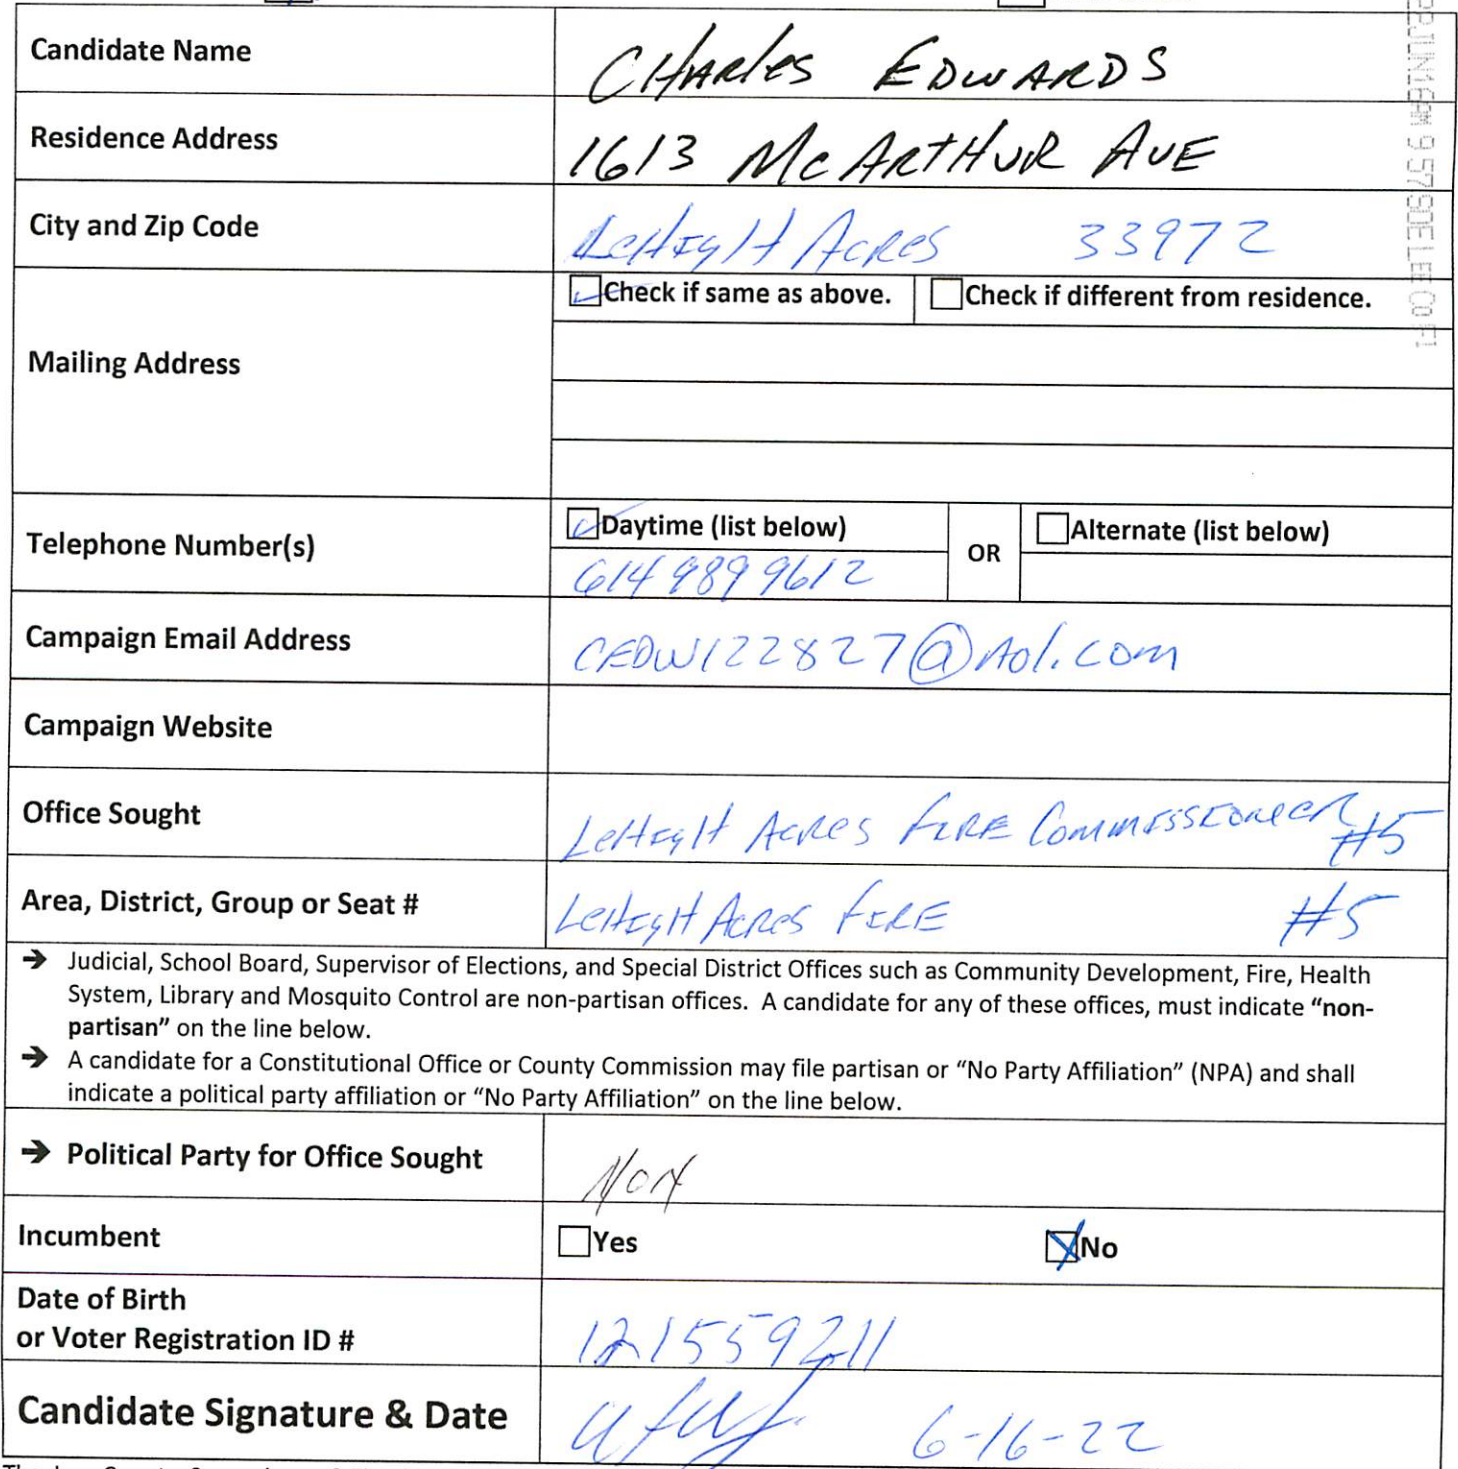 Candidate Name CHArles EDWARDS
Residence Address 1613 McARTHUR AVE
City and Zip Code LeHIgH Acres 33972
Check if same as above. Check if different from residence.
Mailing Address
Daytime (list below) OR Alternate (list below)
Telephone Number(s) 6149899612
Campaign Email Address CEDW122827@Aol.com
Campaign Website
Office Sought LeHIgH Acres FIRE CommISSIONeR #5
Area, District, Group or Seat # LeHIgH Acres FIRE #5
→ Judicial, School Board, Supervisor of Elections, and Special District Offices such as Community Development, Fire, Health
System, Library and Mosquito Control are non-partisan offices. A candidate for any of these offices, must indicate “non-
partisan” on the line below.
→ A candidate for a Constitutional Office or County Commission may file partisan or “No Party Affiliation” (NPA) and shall
indicate a political party affiliation or “No Party Affiliation” on the line below.
→ Political Party for Office Sought NON
Incumbent Yes No
Date of Birth
or Voter Registration ID # 121559211
Candidate Signature & Date 6-16-22